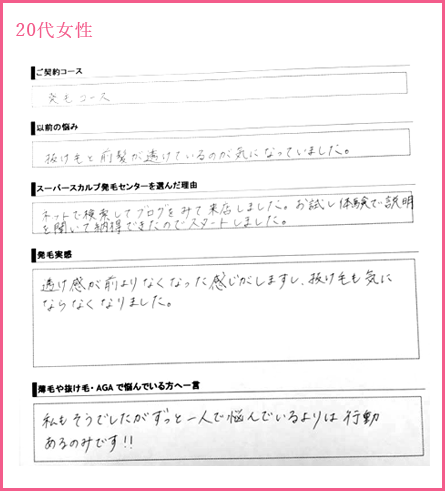 20代女性
ご契約コース
発毛コース
以前の悩み
抜け毛と前髪が透けているのが気になっていました。
スーパースカルプ発毛センターを選んだ理由
ネットで検索してブログをみて来店しました。お試し体験で説明
を聞いて納得できたのでスタートしました。
発毛実感
透け感が前よりなくなった感じがしますし、抜け毛も気に
ならなくなりました。
薄毛や抜け毛・AGAで悩んでいる方へ一言
私もそうでしたがずっと一人で悩んでいるよりは行動
あるのみです!!